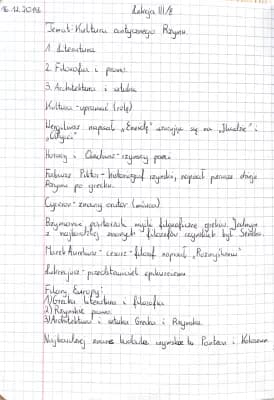 16.12.2016 Lekcja III/8
Temat: Kultura antycznego Rzymu.
1. Literatura
2. Filozofia i prawo.
3. Architektura i sztuka
Kultura - uprawiać (rolę)
Wergiliusz napisał „Eneidę” wzorując się na „Iliadzie” i
„Odysei”
Horacy i Owidiusz - rzymscy poeci
Fabiusz Piktor - historiograf rzymski, napisał pierwsze dzieje
Rzymu po grecku.
Cyceron - znany orator (mówca)
Rzymianie podzielali myśli filozoficzne greków. Jednym
z najbardziej znanych filozofów rzymskich był Seneka.
Marek Aureliusz - cesarz - filozof napisał „Rozmyślania”
Lukrecjusz - przedstawiciel epikureizmu
Filary Europy:
1) Grecka literatura i filozofia
2) Rzymskie prawo
3) Architektura i sztuka Grecka i Rzymska.
Najbardziej znane budowle rzymskie to Panteon i Koloseum